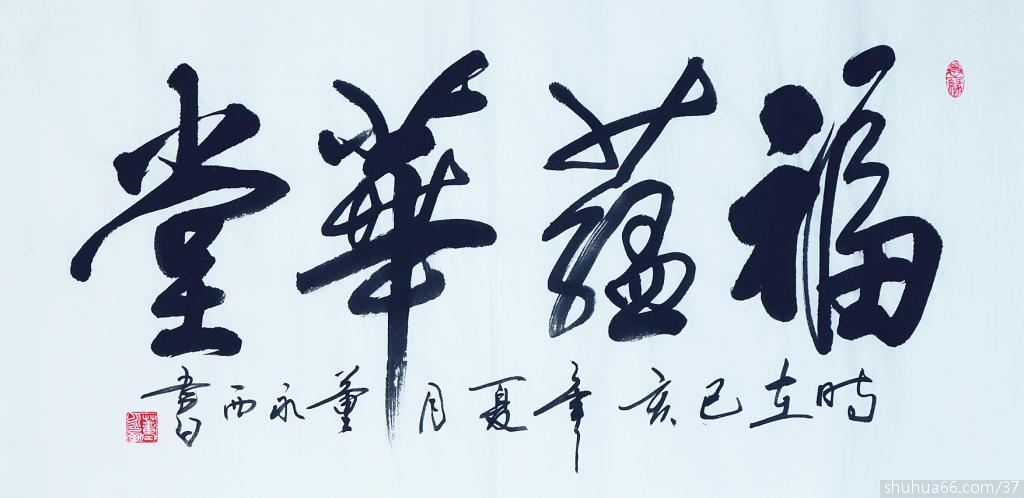 福蘊華堂
時在己亥年夏月董永西書
shuhua66.com/37